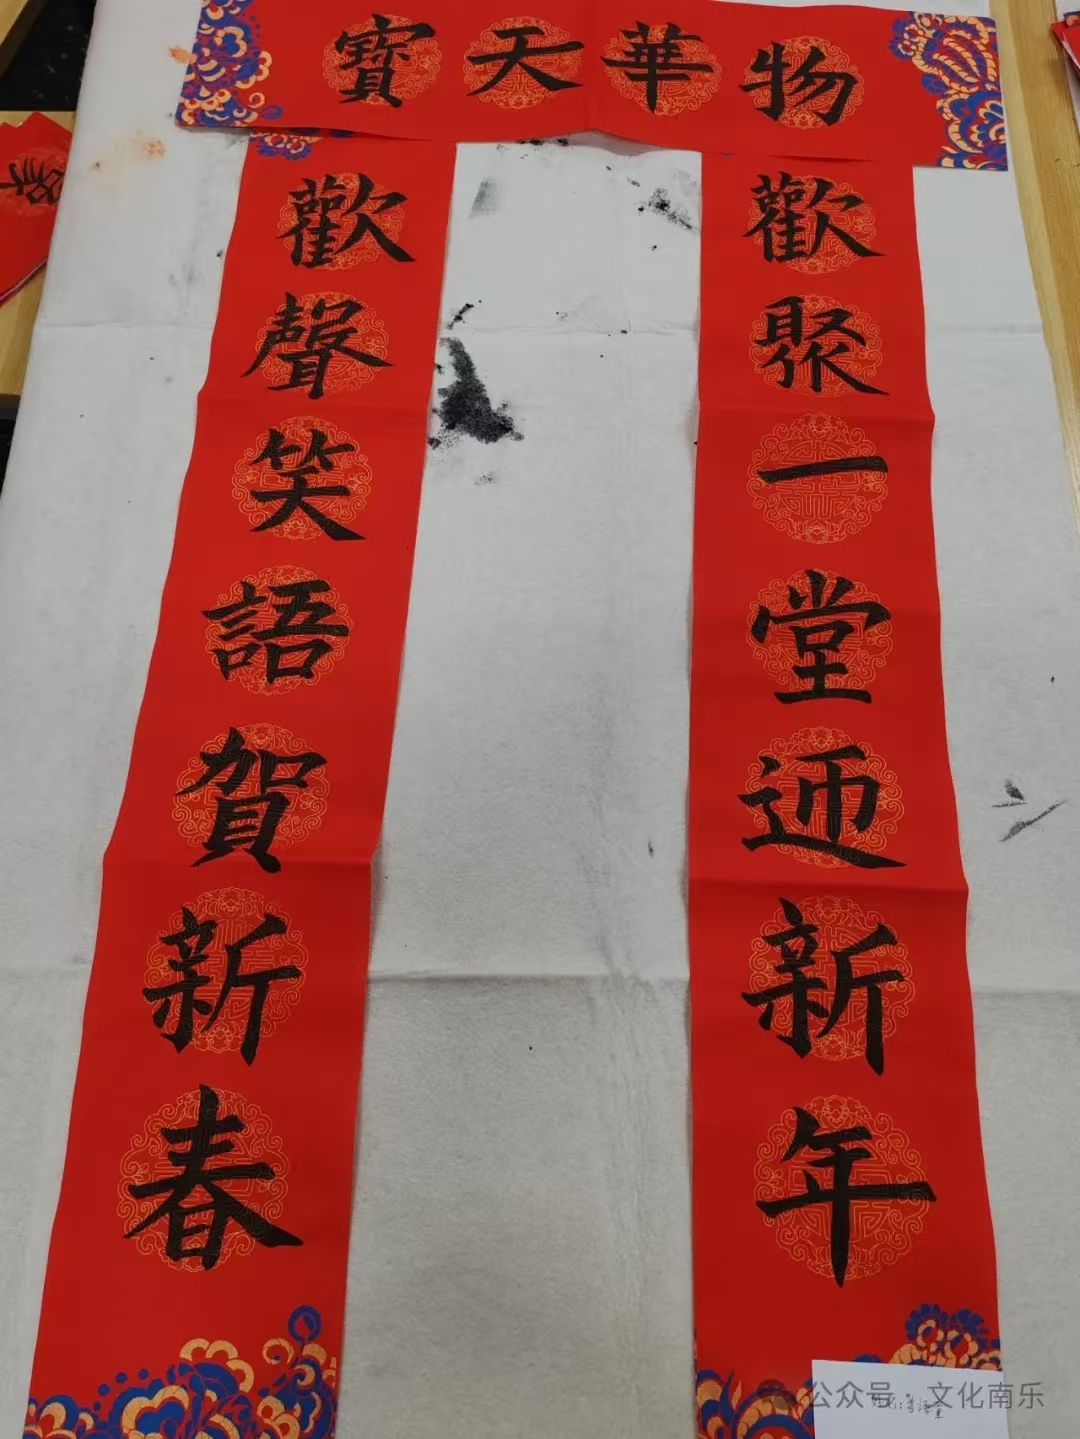 物華天寶
歡聚一堂迊新年
歡聲笑語賀新春
公众号·文化南乐